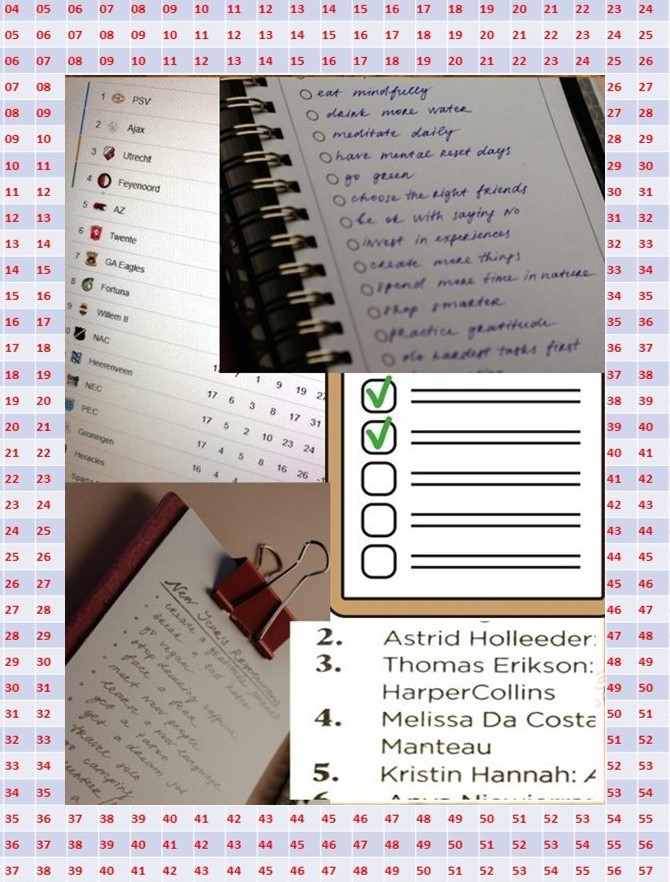 04 05 06 07 08 09 10 11 12 13 14 15 16 17 18 19 20 21 22 23 24
05 06 07 08 09 10 11 12 13 14 15 16 17 18 19 20 21 22 23 24 25
06 07 08 09 10 11 12 13 14 15 16 17 18 19 20 21 22 23 24 25 26
07 08 26 27
08 09 27 28
09 10 28 29
10 11 29 30
11 12 30 31
12 13 31 32
13 14 32 33
14 15 33 34
15 16 34 35
16 17 35 36
17 18 36 37
18 19 37 38
19 20 38 39
20 21 39 40
21 22 40 41
22 23 41 42
23 24 42 43
24 25 43 44
25 26 44 45
26 27 45 46
27 28 46 47
28 29 47 48
29 30 48 49
30 31 49 50
31 32 50 51
32 33 51 52
33 34 52 53
34 35 53 54
35 36 37 38 39 40 41 42 43 44 45 46 47 48 49 50 51 52 53 54 55
36 37 38 39 40 41 42 43 44 45 46 47 48 49 50 51 52 53 54 55 56
37 38 39 40 41 42 43 44 45 46 47 48 49 50 51 52 53 54 55 56 57
1 PSV
2 Ajax
3 Utrecht
4 Feyenoord
5 AZ
6 Twente
7 GA Eagles
8 Fortuna
9 Willem II
NAC
Heerenveen 7 1 9 19
NEC 17 6 3 8 17 31
PEC 17 5 2 10 23 24
Groningen 17 4 5 8 16 26
Heracles 16 4 4
eat mindfully
drink more water
meditate daily
have mental reset days
go green
choose the right friends
be ok with saying no
invest in experiences
create more things
spend more time in nature
shop smarter
practice gratitude
do hardest tasks first
New Year's Resolutions
create a gratitude
break a bad habit
go vegan
stop drinking caffeine
face a fear
meet new people
learn a new language
get a tattoo
get a dream job
travel solo
go camping
2. Astrid Holleeder:
3. Thomas Erikson:
HarperCollins
4. Melissa Da Costa
Manteau
5. Kristin Hannah: A